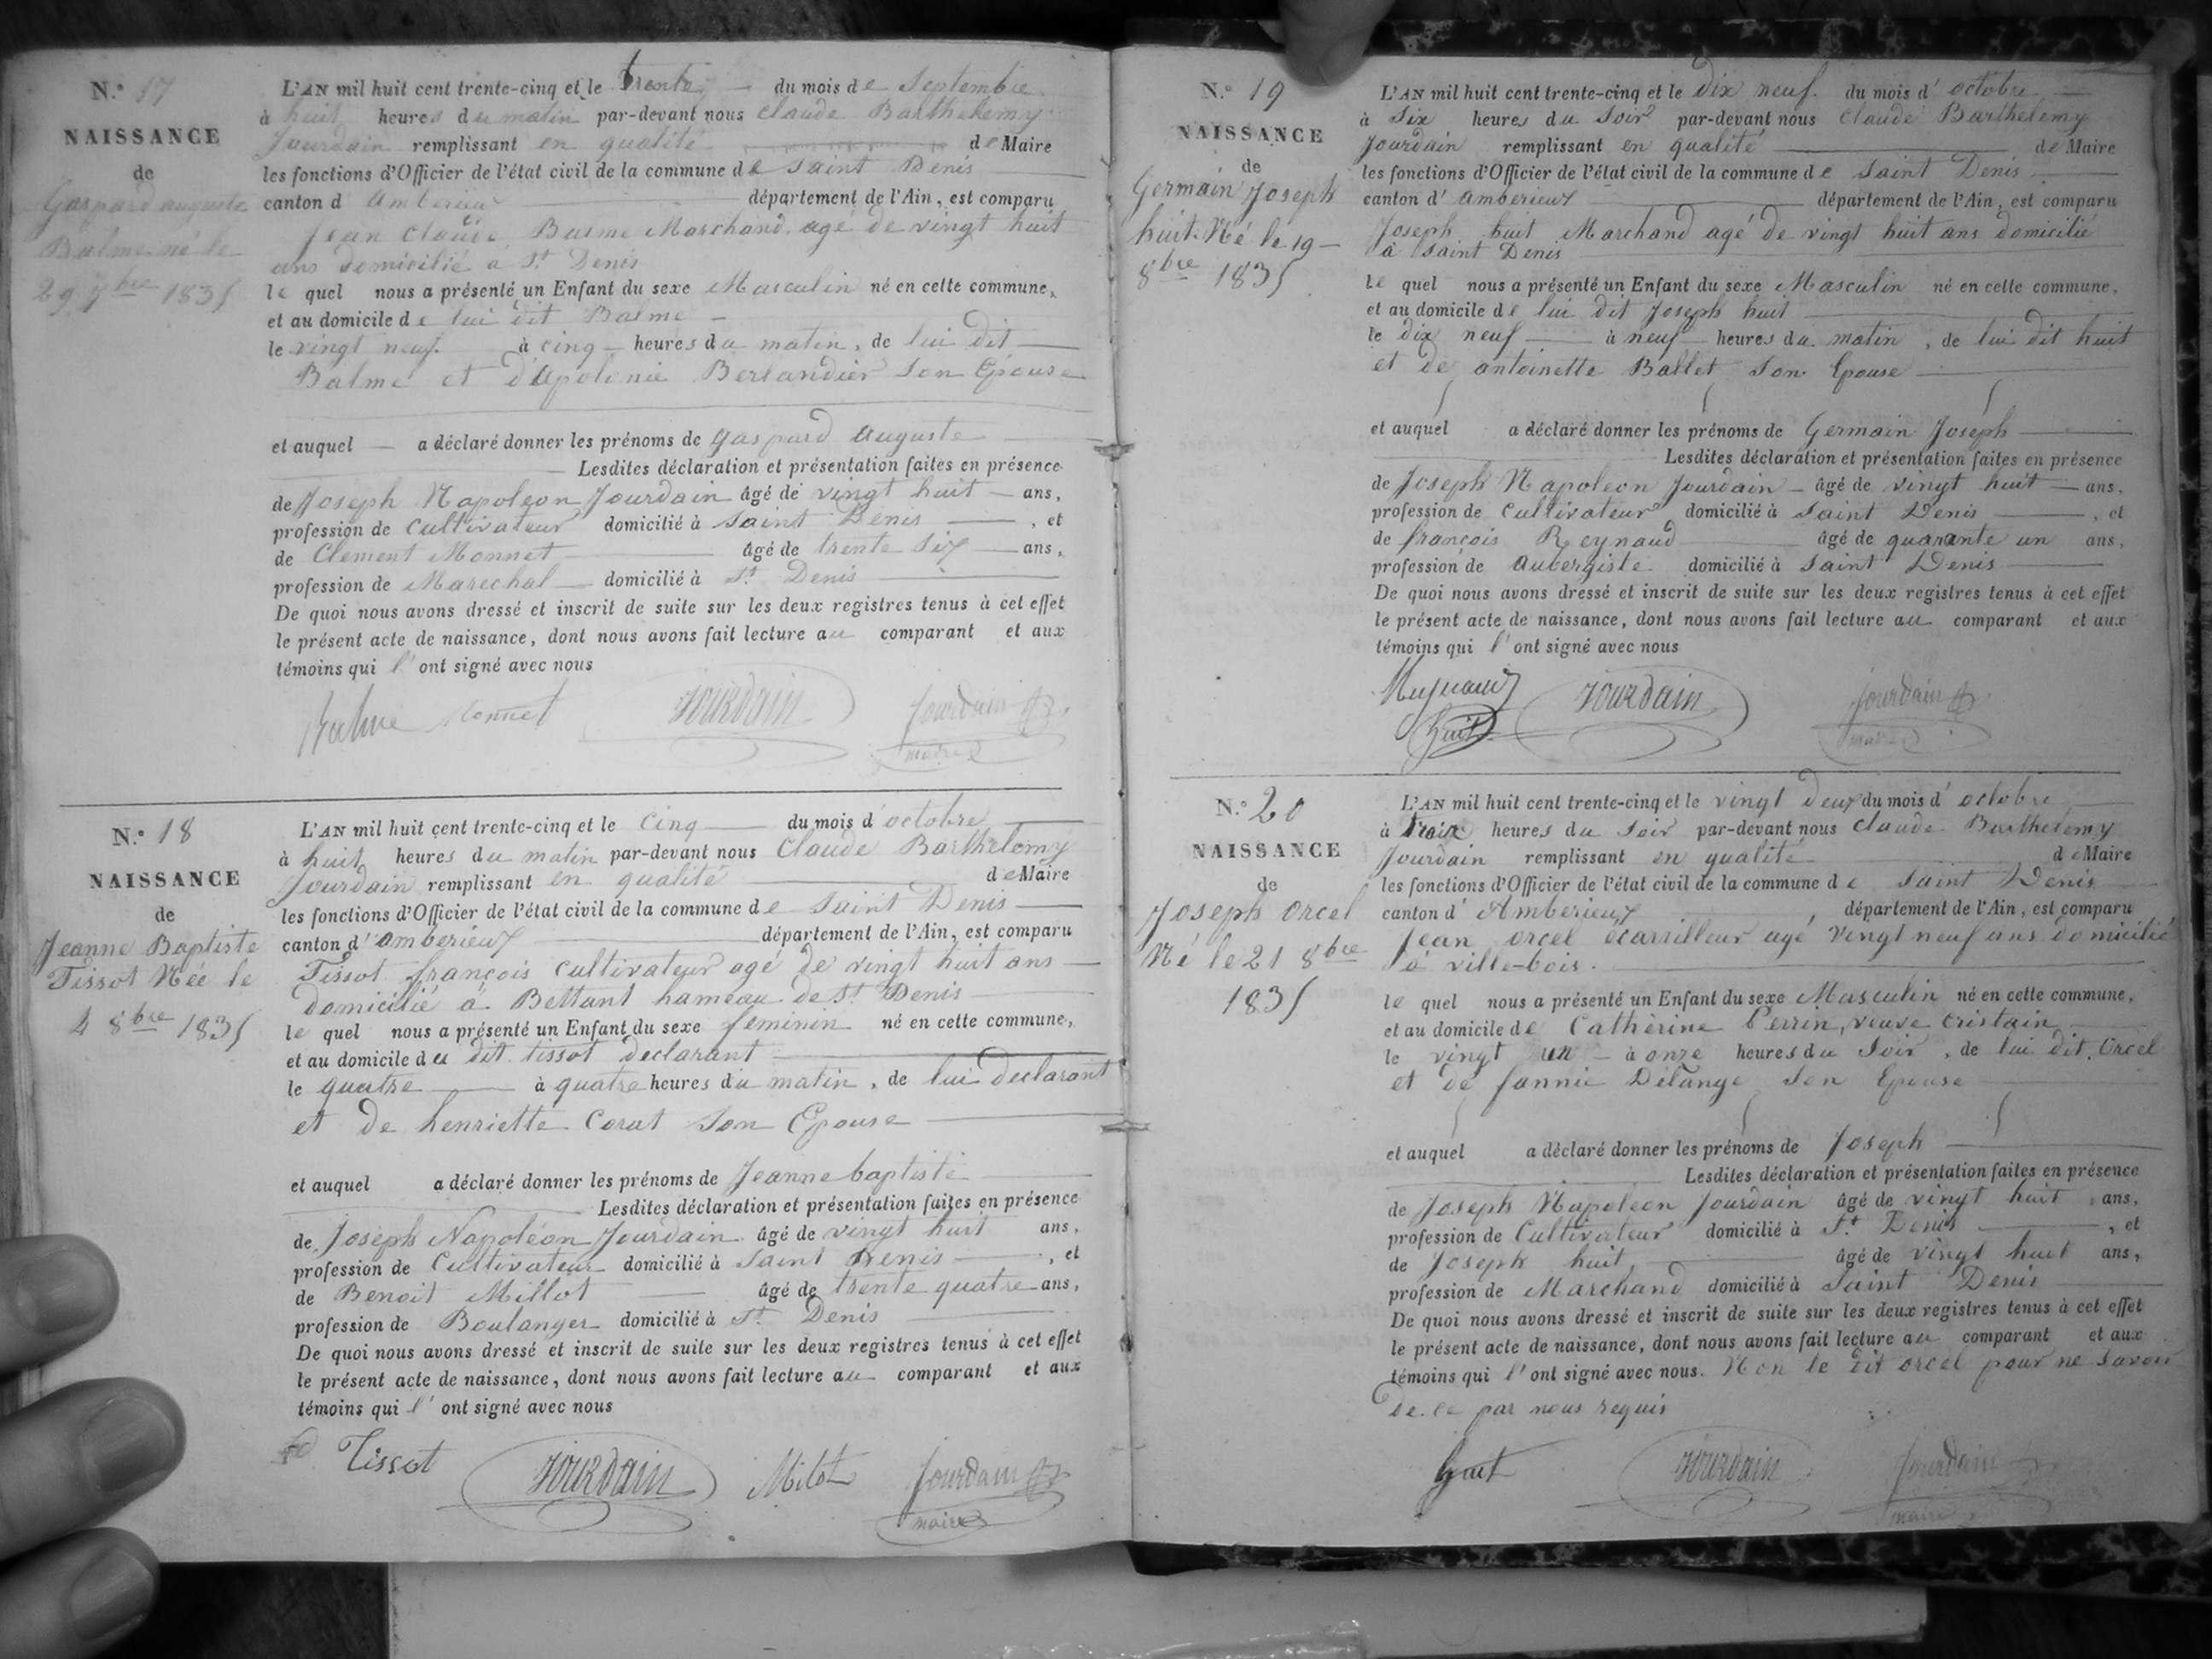 N.° 17
NAISSANCE
de
Gaspard auguste
Balme né le
29 7bre 1835
L'AN mil huit cent trente-cinq et le trente du mois de Septembre
à huit heures du matin par-devant nous Claude Barthelemy
Jourdain remplissant en qualité de Maire
les fonctions d'Officier de l'état civil de la commune de Saint Denis
canton d amberieux département de l'Ain, est comparu
Jean Claude Balme Marchand agé de vingt huit
ans domicilié a St Denis
le quel nous a présenté un Enfant du sexe Masculin né en cette commune,
et au domicile de lui dit Balme
le vingt neuf à cinq heures du matin, de lui dit
Balme et d'Apolonie Berlandier Son Epouse
et auquel a déclaré donner les prénoms de Gaspard Auguste
Lesdites déclaration et présentation faites en présence
de Joseph Napoleon Jourdain âgé de vingt huit ans,
profession de Cultivateur domicilié à Saint Denis, et
de Clement Monnet âgé de trente Six ans,
profession de Marechal domicilié à St Denis
De quoi nous avons dressé et inscrit de suite sur les deux registres tenus à cet effet
le présent acte de naissance, dont nous avons fait lecture au comparant et aux
témoins qui l'ont signé avec nous
Balme Monnet Jourdain Jourdain
maire
N.° 18
NAISSANCE
de
Jeanne Baptiste
Tissot Née le
4 8bre 1835
L'AN mil huit cent trente-cinq et le Cinq du mois d'octobre
à huit heures du matin par-devant nous Claude Barthelemy
Jourdain remplissant en qualité de Maire
les fonctions d'Officier de l'état civil de la commune de Saint Denis
canton d'amberieux département de l'Ain, est comparu
Tissot françois cultivateur agé de vingt huit ans
domicilié à Bettant hameau de St Denis
le quel nous a présenté un Enfant du sexe feminin né en cette commune,
et au domicile du dit tissot declarant
le quatre à quatre heures du matin, de lui declarant
et de henriette Corat Son Epouse
et auquel a déclaré donner les prénoms de Jeanne baptiste
Lesdites déclaration et présentation faites en présence
de Joseph Napoléon Jourdain âgé de vingt huit ans,
profession de Cultivateur domicilié à Saint Denis, et
de Benoit Millot âgé de trente quatre ans,
profession de Boulanger domicilié à St Denis
De quoi nous avons dressé et inscrit de suite sur les deux registres tenus à cet effet
le présent acte de naissance, dont nous avons fait lecture au comparant et aux
témoins qui l'ont signé avec nous
Tissot Jourdain Milot Jourdain
maire
N.° 19
NAISSANCE
de
Germain Joseph
huit Né le 19
8bre 1835
L'AN mil huit cent trente-cinq et le dix neuf du mois d'octobre
à Six heures du Soir par-devant nous Claude Barthelemy
Jourdain remplissant en qualité de Maire
les fonctions d'Officier de l'état civil de la commune de Saint Denis
canton d'amberieux département de l'Ain, est comparu
Joseph huit Marchand agé de vingt huit ans domicilié
à Saint Denis
le quel nous a présenté un Enfant du sexe Masculin né en cette commune,
et au domicile de lui dit Joseph huit
le dix neuf à neuf heures du matin, de lui dit huit
et de antoinette Ballet Son Epouse
et auquel a déclaré donner les prénoms de Germain Joseph
Lesdites déclaration et présentation faites en présence
de Joseph Napoleon Jourdain âgé de vingt huit ans,
profession de Cultivateur domicilié à Saint Denis, et
de françois Reynaud âgé de quarante un ans,
profession de Aubergiste domicilié à Saint Denis
De quoi nous avons dressé et inscrit de suite sur les deux registres tenus à cet effet
le présent acte de naissance, dont nous avons fait lecture au comparant et aux
témoins qui l'ont signé avec nous
Jourdain Jourdain
huit maire
N.° 20
NAISSANCE
de
Joseph Orcel
Né le 21 8bre
1835
L'AN mil huit cent trente-cinq et le vingt deux du mois d'octobre
à trois heures du Soir par-devant nous Claude Barthelemy
Jourdain remplissant en qualité de Maire
les fonctions d'Officier de l'état civil de la commune de Saint Denis
canton d'Amberieux, département de l'Ain, est comparu
Jean orcel ecarrilleur agé vingt neuf ans domicilié
à ville-bois.
le quel nous a présenté un Enfant du sexe Masculin né en cette commune,
et au domicile de Cathèrine Perrin, veuve Cristain
le vingt un à onze heures du Soir, de lui dit Orcel
et de fannie Délange Son Epouse
et auquel a déclaré donner les prénoms de Joseph
Lesdites déclaration et présentation faites en présence
de Joseph Napoléon Jourdain âgé de vingt huit ans,
profession de Cultivateur domicilié à St Denis, et
de Joseph huit âgé de vingt huit ans,
profession de Marchand domicilié à Saint Denis
De quoi nous avons dressé et inscrit de suite sur les deux registres tenus à cet effet
le présent acte de naissance, dont nous avons fait lecture au comparant et aux
témoins qui l'ont signé avec nous. Non le dit orcel pour ne Savoir
de ce par nous requis
huit Jourdain Jourdain
maire